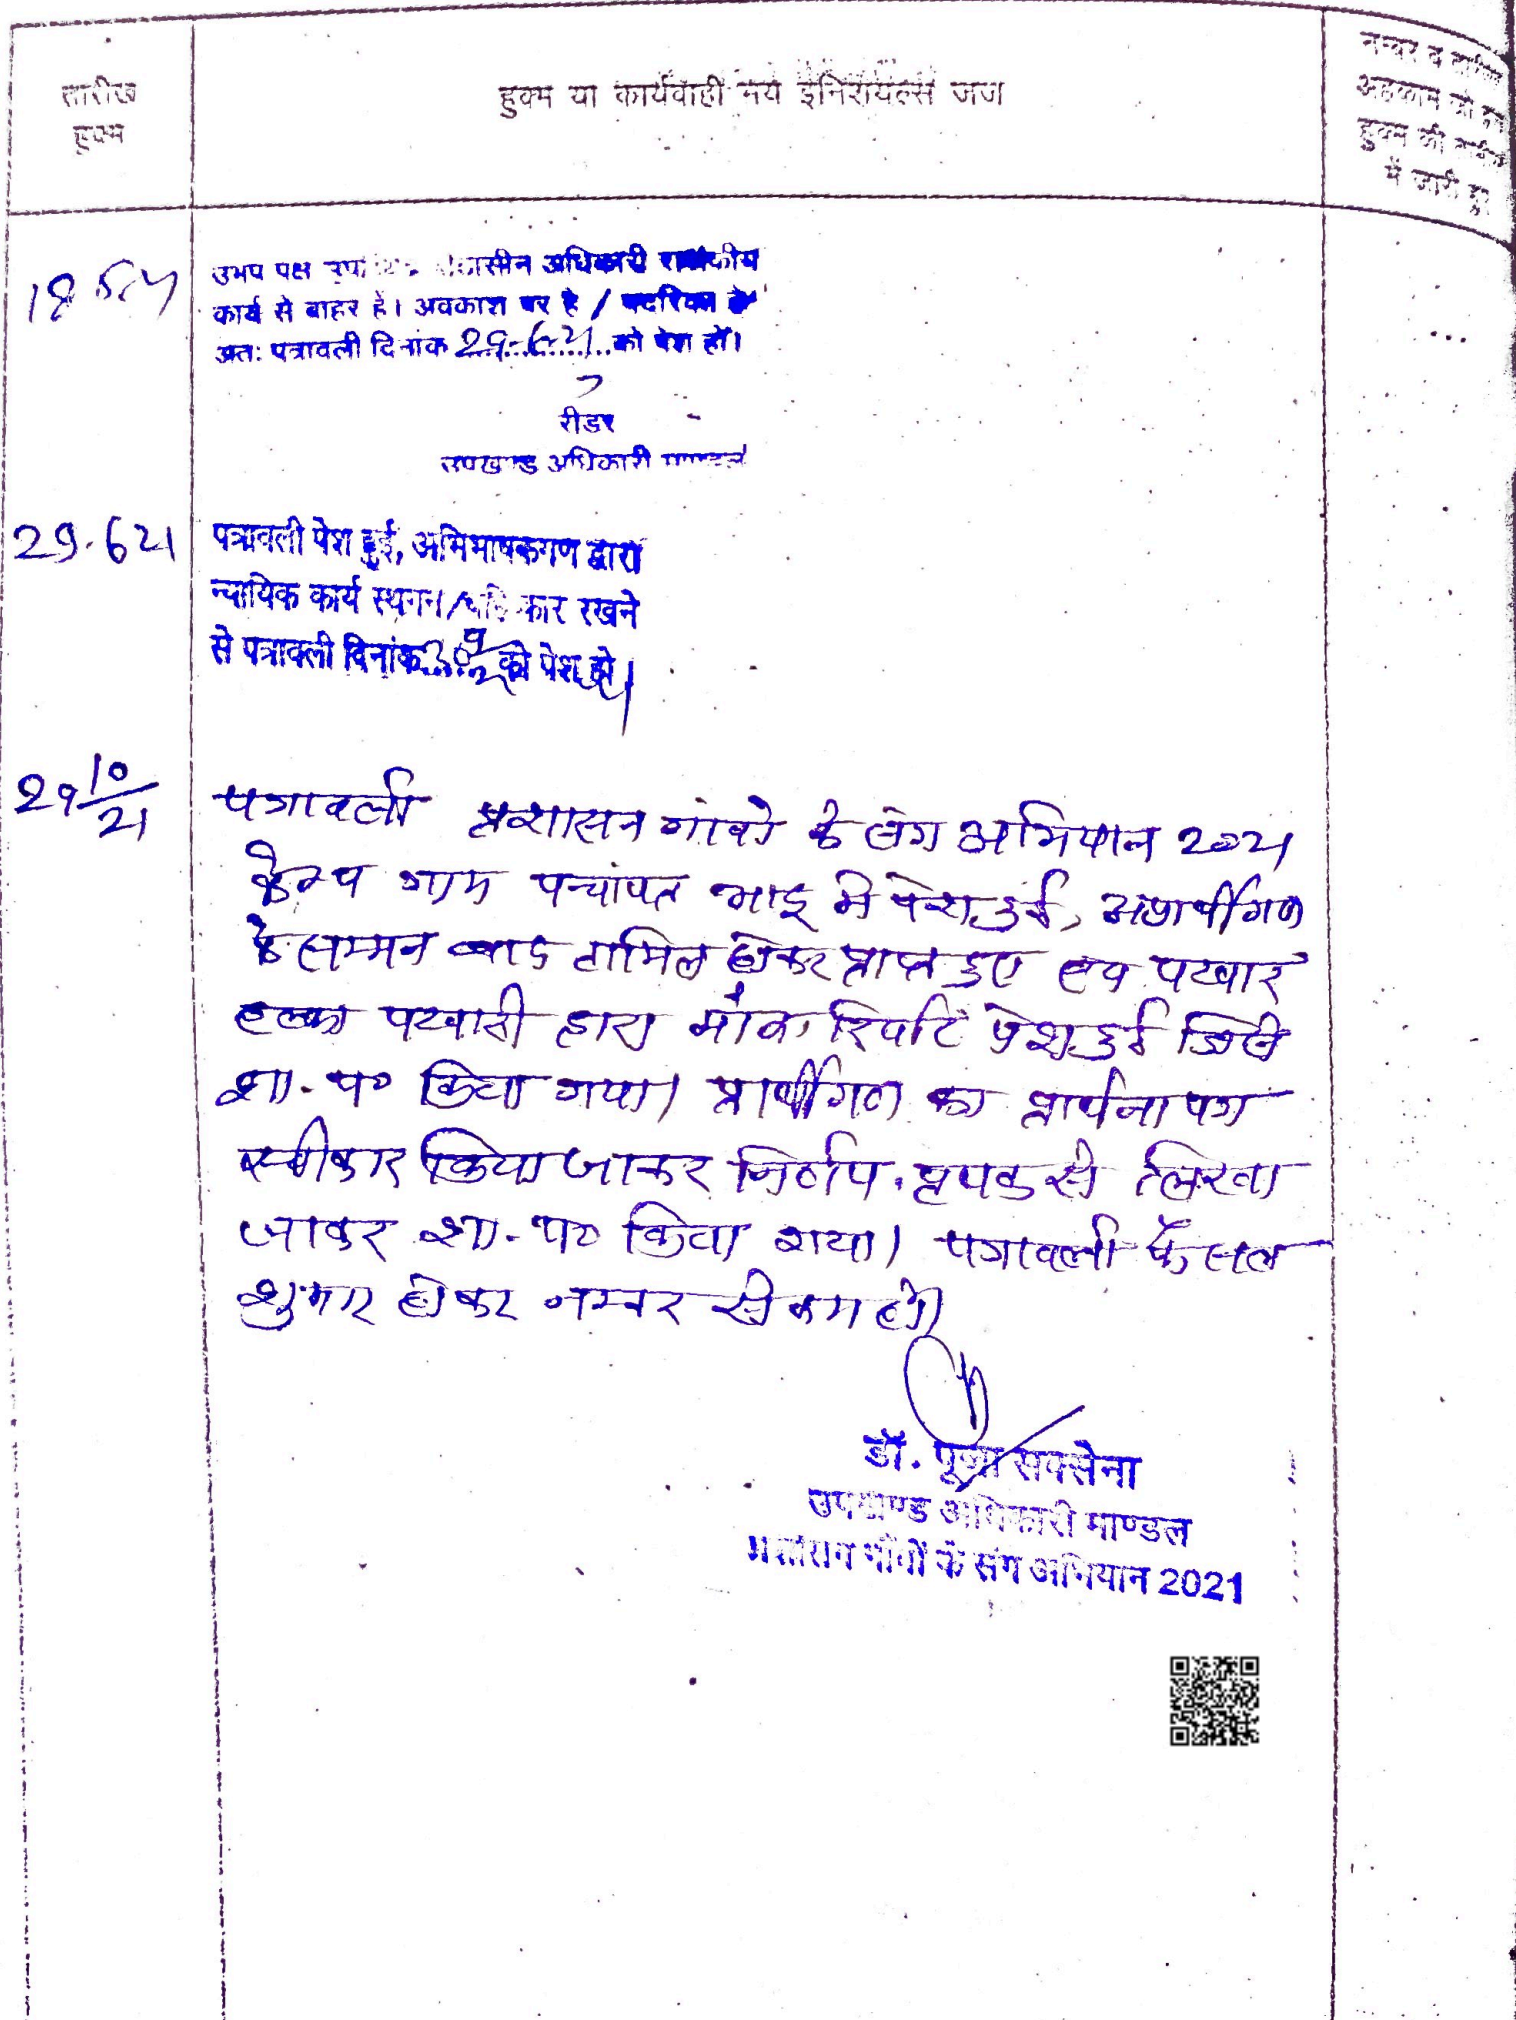 तारीख
हुक्म
हुक्म या कार्यवाही मय इनिशियल्स जज
नम्बर व तारीख
अहकाम जो इस
हुक्म की तामील
में जारी हुए
उभय पक्ष अधिकारी राजकीय
कार्य से बाहर है। अवकाश पर है /
अतः पत्रावली दिनांक 29.6.21 को पेश हो।
रीडर
उपखण्ड अधिकारी माण्डल
29.6.21
पत्रावली पेश हुई, अभिभाषकगण द्वारा
न्यायिक कार्य स्थगन/ रखने
से पत्रावली दिनांक को पेश हो।
29 10/21
पत्रावली प्रशासन गांवो के संग अभियान 2021
केम्प ग्राम पंचायत में पेश हुई, अप्रार्थीगण
के सम्मन बाद तामिल होकर प्राप्त हुए पटवार
हल्का पटवारी द्वारा मौका रिपोर्ट पेश हुई जिसे
शा. प० किया गया। प्रार्थीगण का प्रार्थना पत्र
स्वीकार किया जाकर निर्णय पृथक से लिखा
जाकर शा. प० किया गया। पत्रावली फैसल
शुमार होकर नम्बर से कम हो।
डॉ. पूजा सक्सेना
उपखण्ड अधिकारी माण्डल
प्रशासन गाँवों के संग अभियान 2021